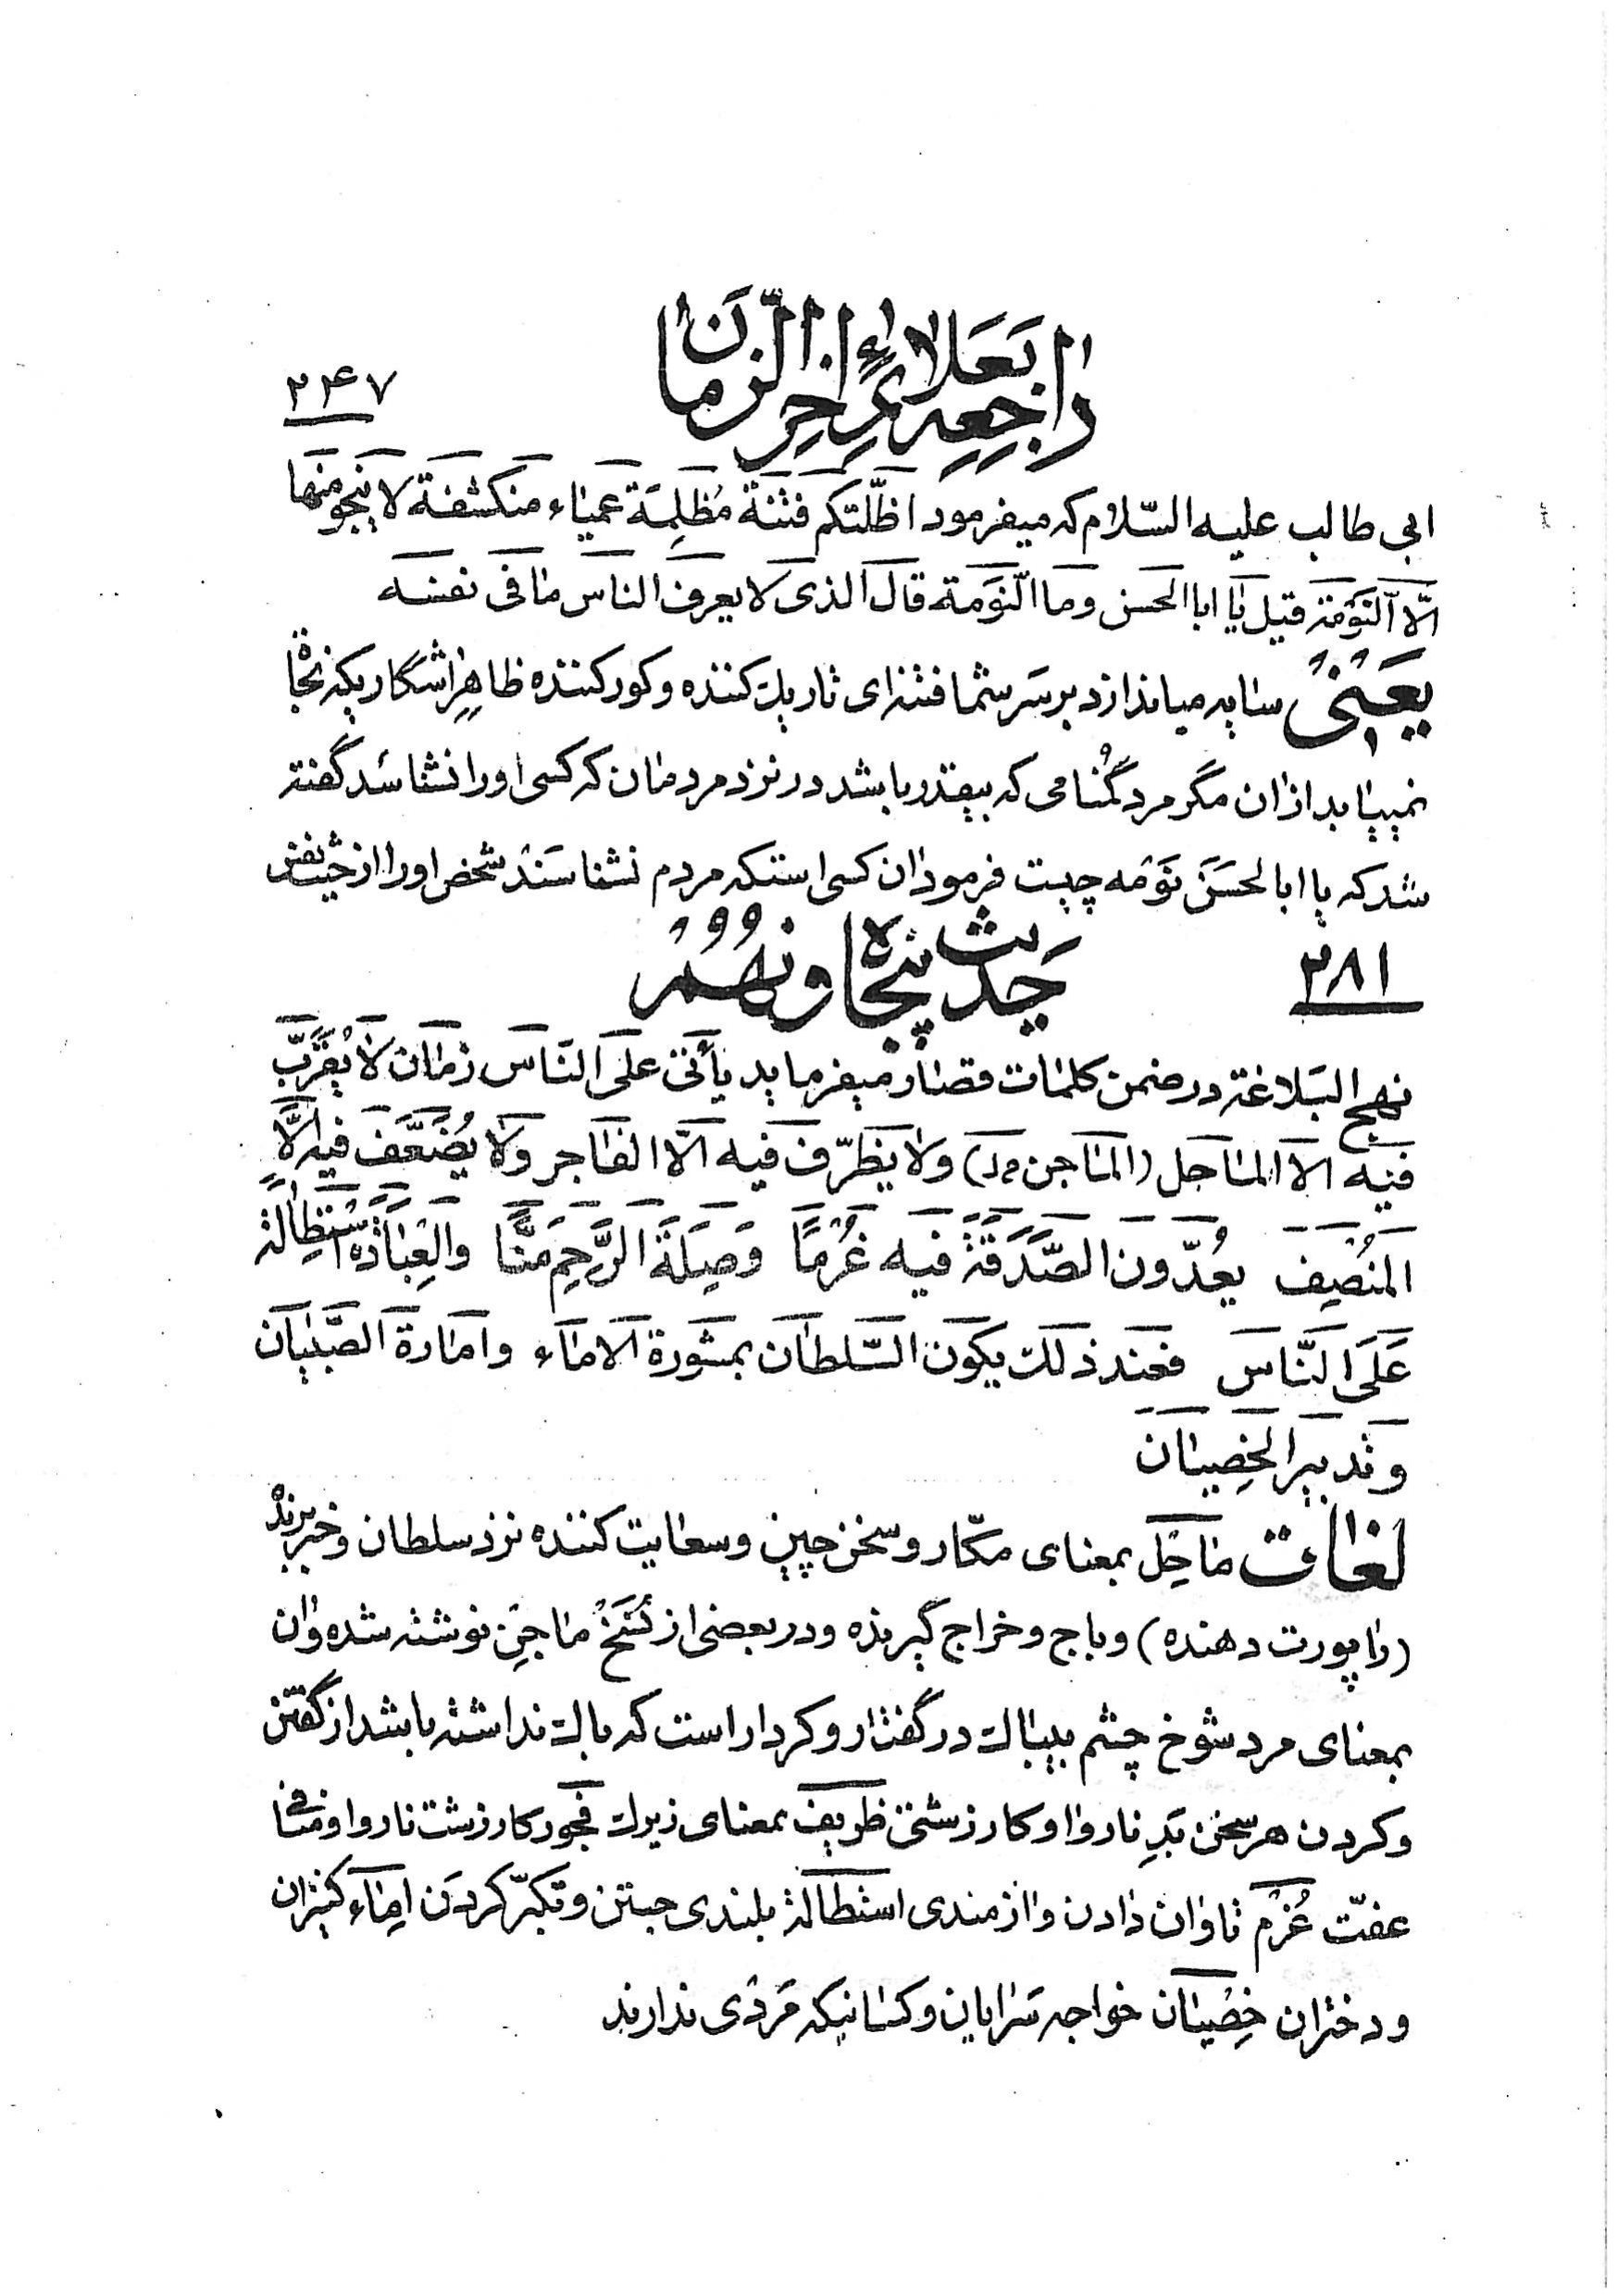 راجعه بعلائم اخر الزمان
۲۴۷
ابی طالب علیه السّلام که میفرمود اظلّتکم فتنة مُظلِمَة عمیاء منکشفة لا ینجو منها
الّا النّوَمَة قیل یا ابا الحسن وما النّوَمَة قال الذی لا یعرف الناس ما فی نفسه
یَعنی سایه میاندازد بر سَر شما فتنه‌ای تاریک کننده و کور کننده ظاهر اشگاریکه نجاة
نمییابد از ان مگر مرد گُمنامی که بیقدر باشد در نزد مردمان که کسی او را نشناسَد گفته
شد که یا ابا لحسَن نوَمَه چیست فرمود ان کسی استکه مردم نشناسَند شخص او را از حیث نفس
حَدیث پنجاه و نهُم
۲۸۱
نهج البَلاغة در ضمن کلمات قصار میفرماید یأتی علی النّاس زمان لا یُقرَّبُ
فیه الّا الماحل (الماجن خ ل) ولا یظرّف فیه الّا الفاجر ولا یُضَعَّف فیه الّا
المُنصِف یعُدّون الصَّدَقَة فیه غُرمًا وَصِلَةَ الرَّحِمِ مَنًّا والعِبادَةَ استِطالة
عَلَی النّاس فعند ذلک یکون السّلطان بمشورة الاماء وامارة الصّبیان
وتدبیر الخِصیان
لغات ماحِل بمعنای مکّار و سخن چین و سعایت کننده نزد سلطان و خبر برنده
(راپورت دهنده) و باج و خراج گیرنده و در بعضی از نُسَخ ماجِن نوشته شده و ان
بمعنای مرد شوخ چشم بیباک در گفتار و کردار است که باک نداشته باشد از گفتن
و کردن هر سخن بَدِ ناروا و کار زشتی ظریف بمعنای زیرک فجور کار زشت ناروا و منافی
عفّت غُرم تاوان دادن و ازمندی استطالة بلندی جستن و تکبّر کردَن اِماء کنیزان
و دختران خِصیان خواجه سَرایان و کسانیکه مَردی ندارند